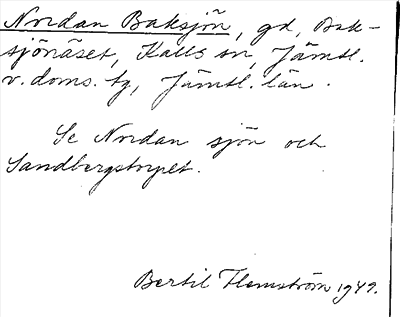 Nordan Baksjön, gd, Bak-
sjönäset, Kalls sn, Jämtl.
v. doms. tg, Jämtl. län.
Se Nordan sjön och
Sandbergstorpet.
Bertil Flemström 1949.